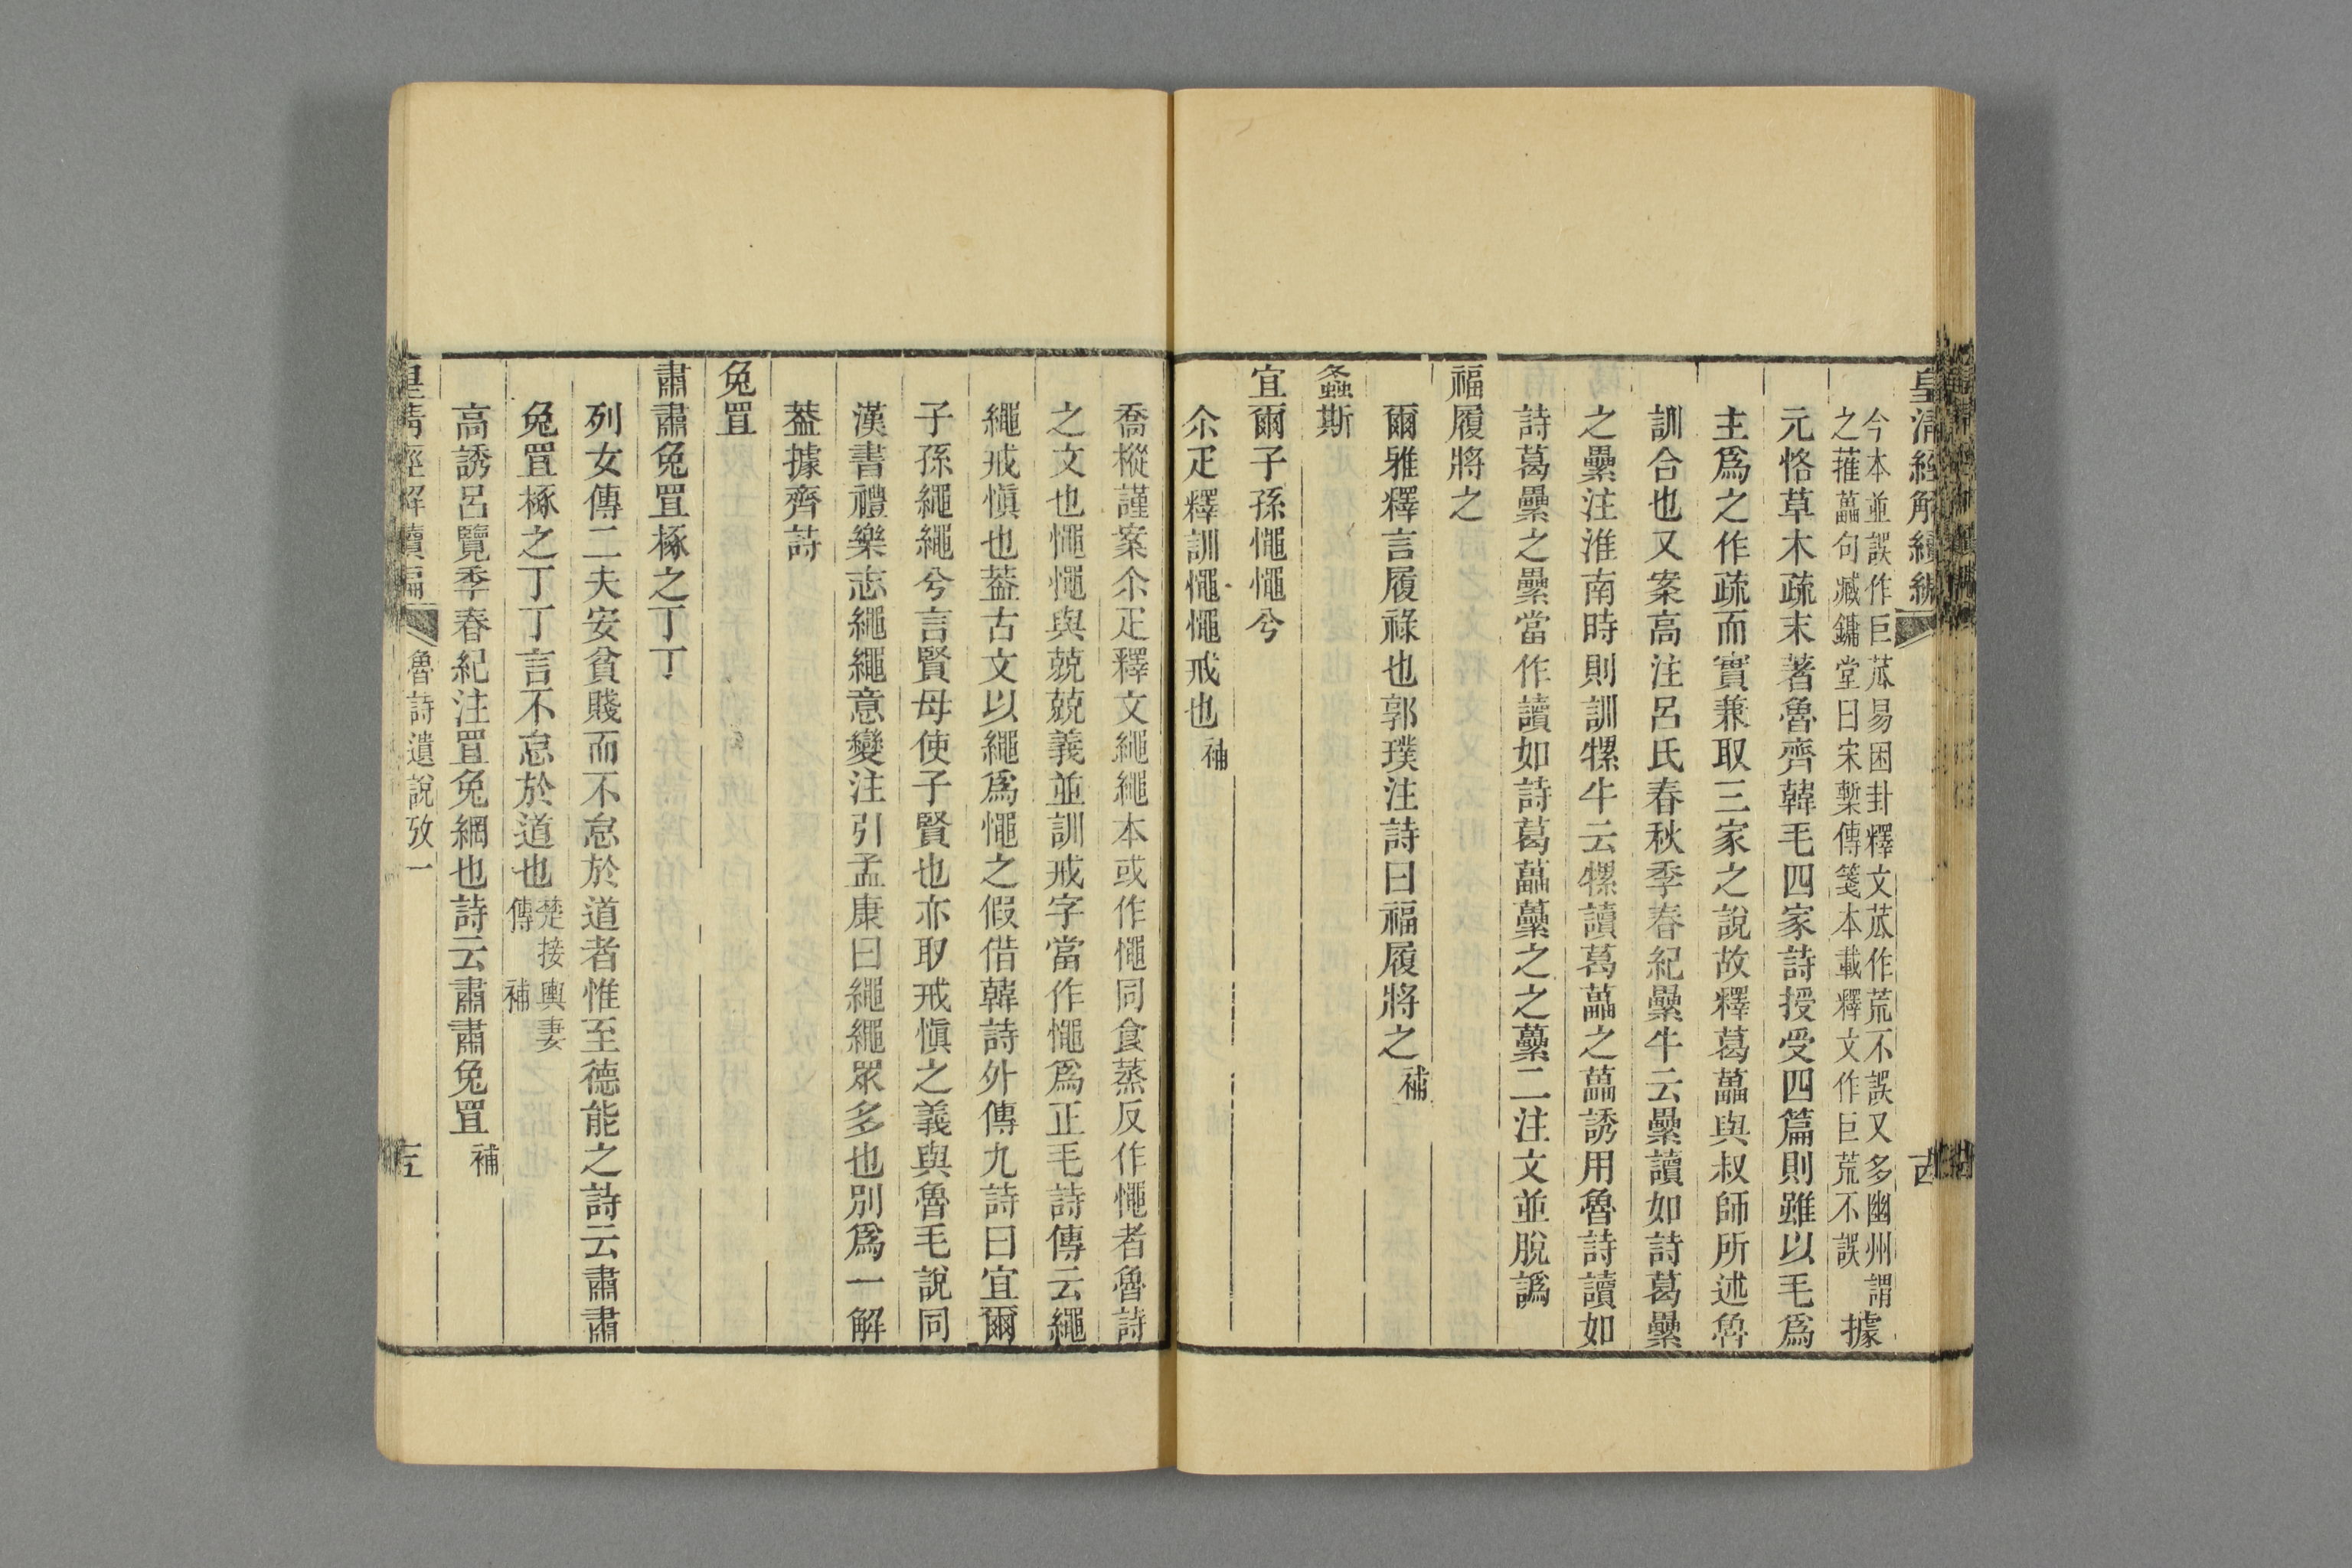 皇清經解續編
今本並誤作巨苽易困卦釋文苽作荒不誤又多幽州謂
之蓷藟句臧鏞堂曰宋槧傳箋本載釋文作巨荒不誤
據
元恪草木疏末著魯齊韓毛四家詩授受四篇則雖以毛爲
主爲之作疏而實兼取三家之說故釋葛藟與叔師所述魯
訓合也又案高注呂氏春秋季春紀纍牛云纍讀如詩葛纍
之纍注淮南時則訓犡牛云犡讀葛藟之藟誘用魯詩讀如
詩葛纍之纍當作讀如詩葛藟虆之之虆二注文並脫譌
福履將之
爾雅釋言履祿也郭璞注詩曰福履將之補
螽斯
宜爾子孫憴憴兮
尒疋釋訓憴憴戒也補
喬樅謹案尒疋釋文繩繩本或作憴同食蒸反作憴者魯詩
之文也憴憴與兢兢義並訓戒字當作憴爲正毛詩傳云繩
繩戒愼也葢古文以繩爲憴之假借韓詩外傳九詩曰宜爾
子孫繩繩兮言賢母使子賢也亦取戒愼之義與魯毛說同
漢書禮樂志繩繩意變注引孟康曰繩繩眾多也別爲一解
葢據齊詩
兔罝
肅肅兔罝椓之丁丁
列女傳二夫安貧賤而不怠於道者惟至德能之詩云肅肅
兔罝椓之丁丁言不怠於道也楚接輿妻傳 補
高誘呂覽季春紀注罝兔網也詩云肅肅兔罝補
皇清經解續編 魯詩遺說攷一